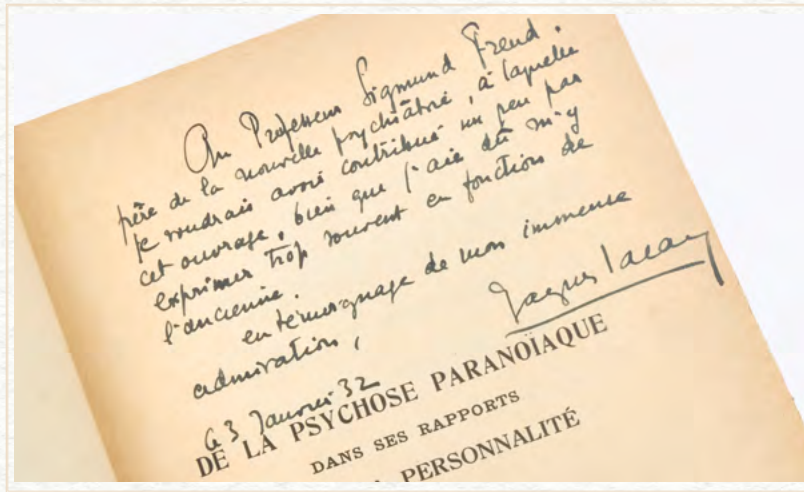 Au Professeur Sigmund Freud.
père de la nouvelle psychiâtrie, à laquelle
je voudrais avoir contribué un peu par
cet ouvrage, bien que j'aie dû m'y
exprimer trop souvent en fonction de
l'ancienne.
en témoignage de mon immense
admiration,
Jacques Lacan
Ce 3 Janvier 32
DE LA PSYCHOSE PARANOÏAQUE
DANS SES RAPPORTS
PERSONNALITÉ